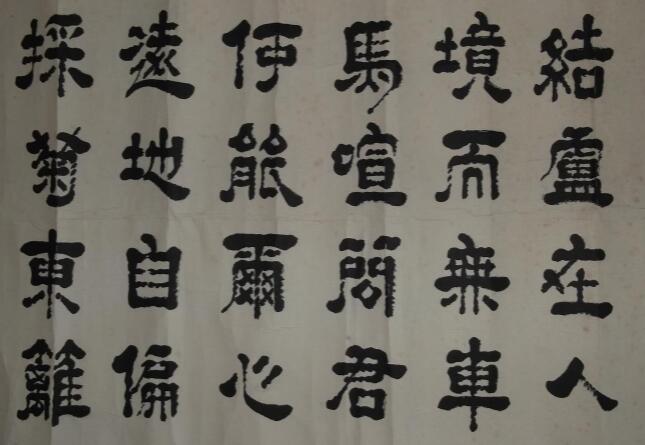 結盧在人
境而無車
馬喧問君
何能爾心
遠地自偏
採菊東籬